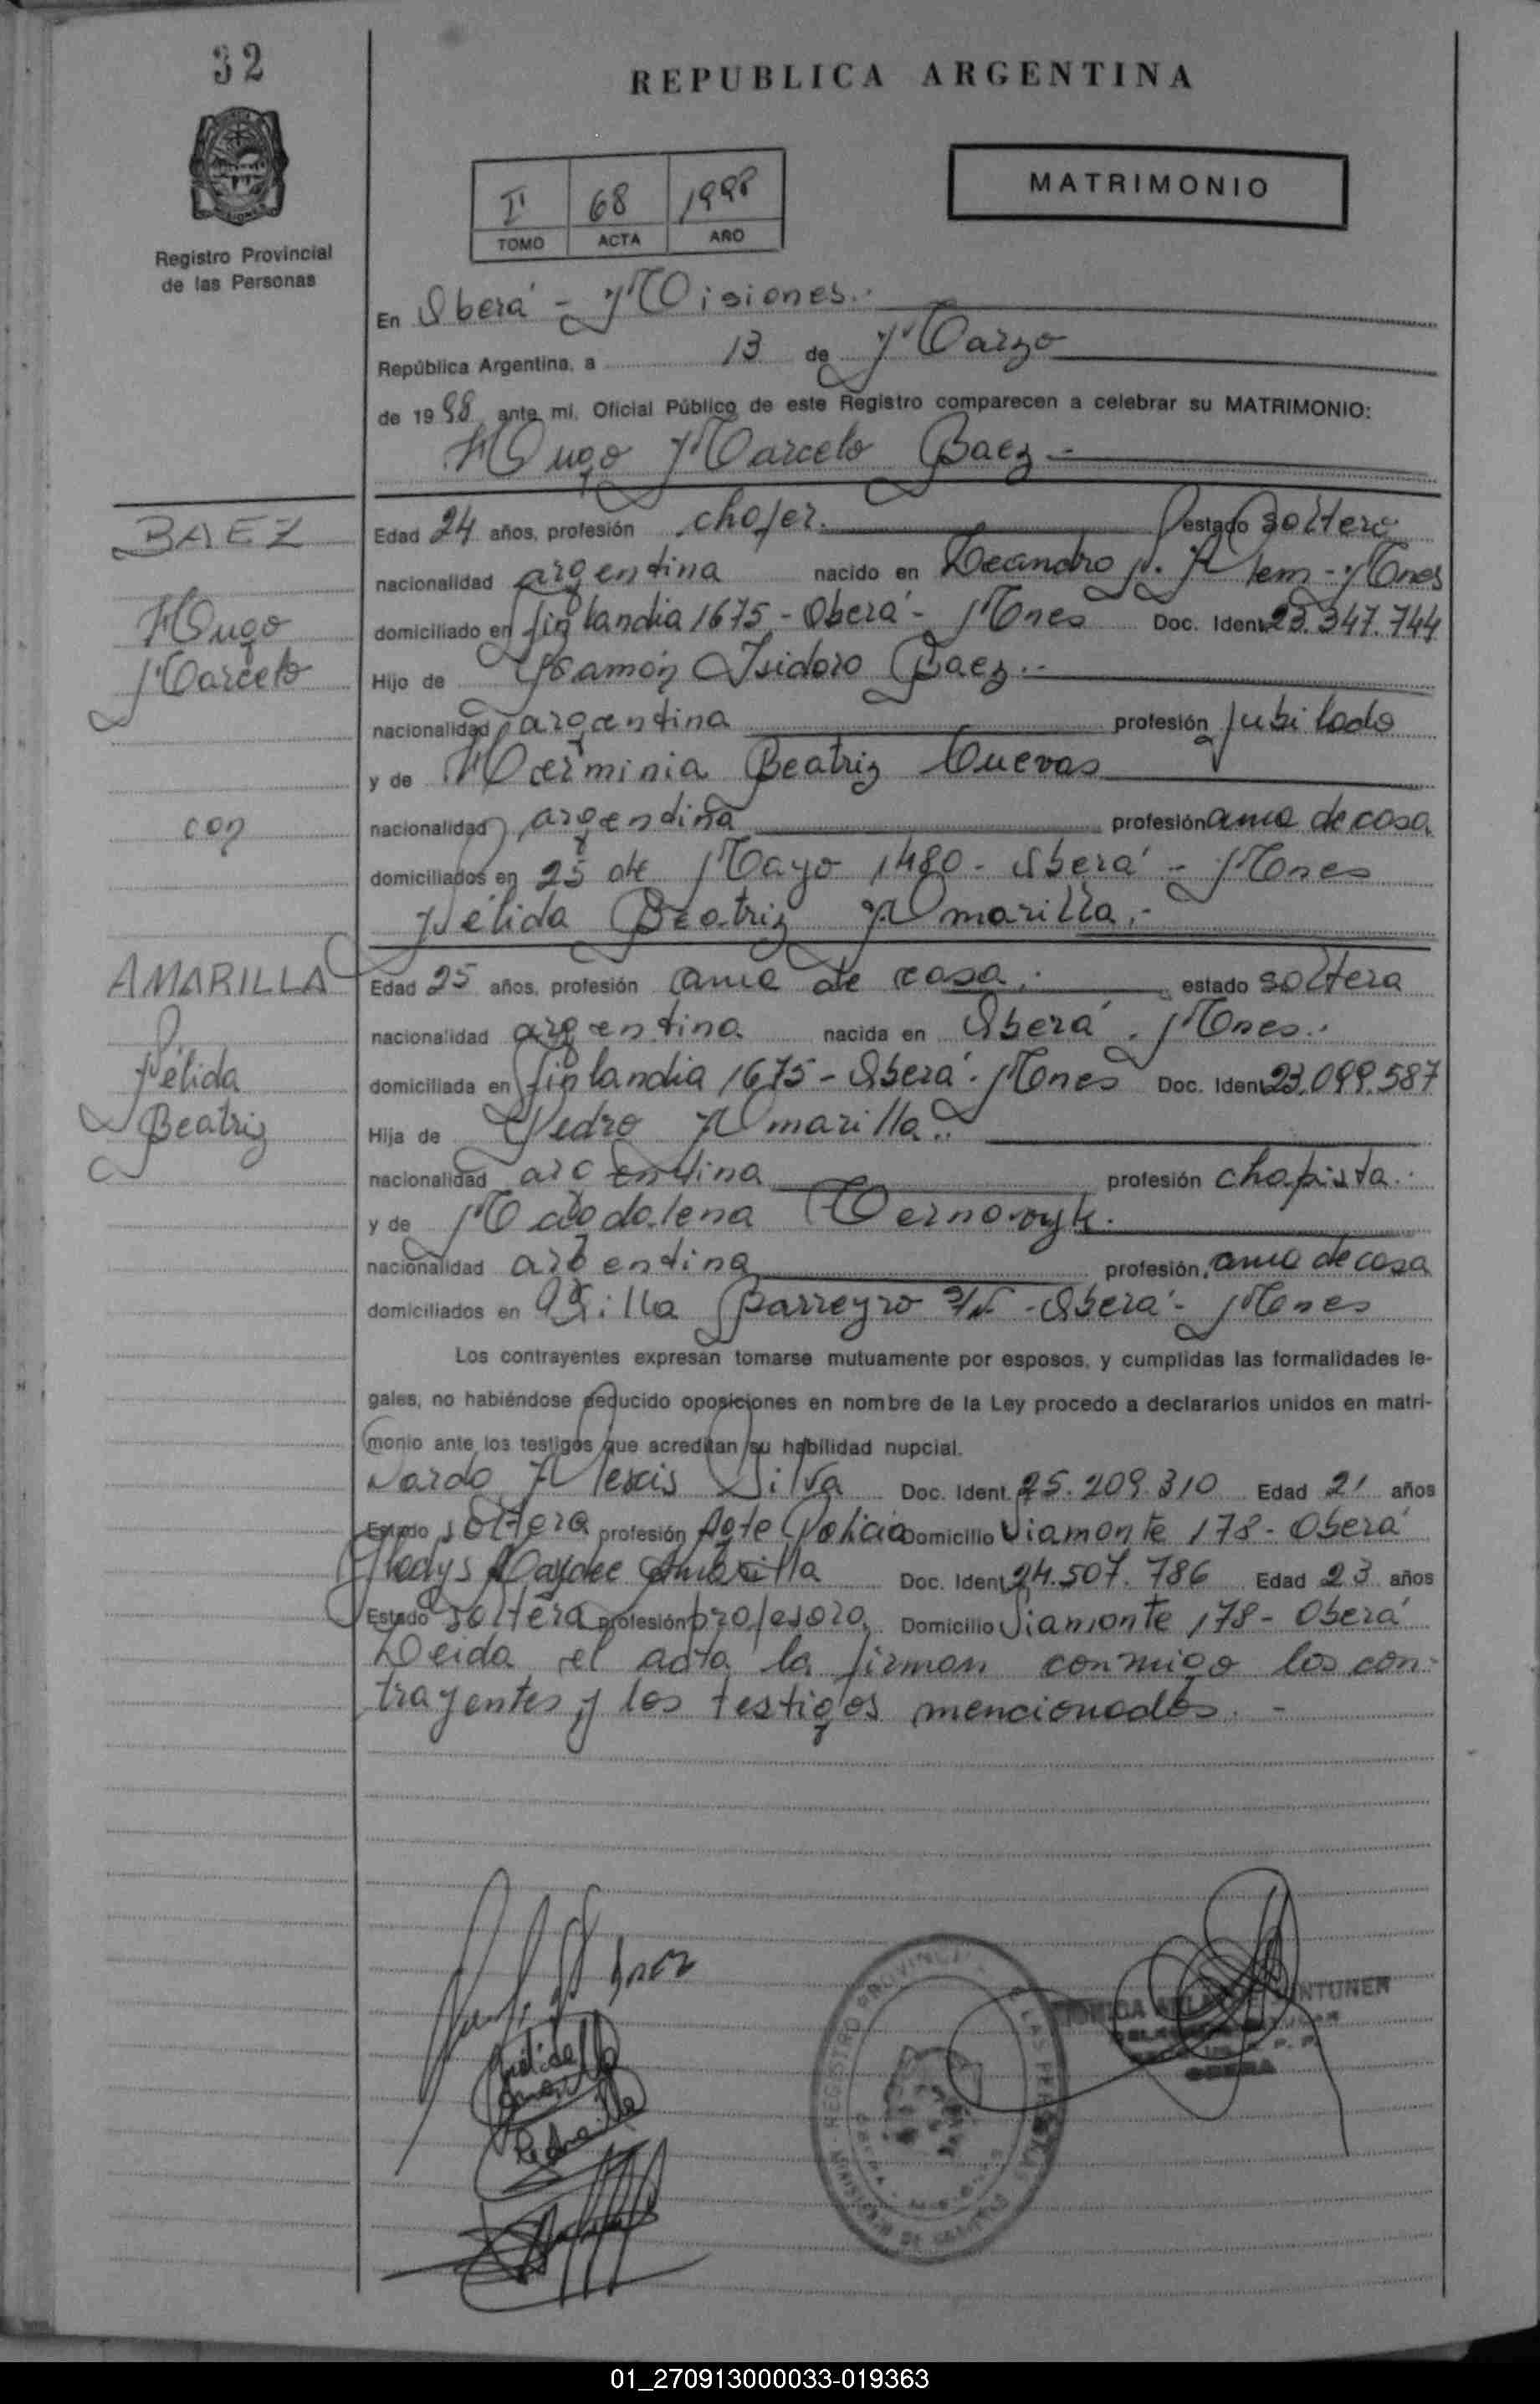 32
REPUBLICA ARGENTINA
MATRIMONIO
I 68 1998
TOMO ACTA AÑO
Registro Provincial
de las Personas
En Oberá - Misiones.
República Argentina, a 13 de Marzo
de 1998 ante mi, Oficial Público de este Registro comparecen a celebrar su MATRIMONIO:
Hugo Marcelo Baez
BAEZ
Hugo
Marcelo
con
Edad 24 años, profesión chofer. estado soltero
nacionalidad argentina nacido en Leandro N. Alem - Mnes
domiciliado en Finlandia 1675 - Oberá - Mnes Doc. Ident. 23.347.744
Hijo de Ramón Isidoro Baez.
nacionalidad argentina profesión jubilado
y de Herminia Beatriz Cuevas
nacionalidad argentina profesión ama de casa
domiciliados en 25 de Mayo 1480 - Oberá - Mnes
Nélida Beatriz Amarilla.-
AMARILLA
Nélida
Beatriz
Edad 25 años, profesión ama de casa. estado soltera
nacionalidad argentina nacida en Oberá. Mnes.
domiciliada en Finlandia 1675 - Oberá - Mnes Doc. Ident. 23.099.587
Hija de Pedro Amarilla.
nacionalidad argentina profesión chapista.
y de Magdalena
nacionalidad argentina profesión, ama de casa
domiciliados en Villa Barreyro S/N - Oberá - Mnes
Los contrayentes expresan tomarse mutuamente por esposos, y cumplidas las formalidades le-
gales, no habiéndose deducido oposiciones en nombre de la Ley procedo a declararlos unidos en matri-
monio ante los testigos que acreditan su habilidad nupcial.
Nardo Alexis Silva Doc. Ident. 25.209.310 Edad 21 años
Estado soltero profesión Agte Policia Domicilio Viamonte 178 - Oberá
Gladys Haydee Amarilla Doc. Ident. 24.507.786 Edad 23 años
Estado soltera profesión profesora Domicilio Viamonte 178 - Oberá
Leida el acta la firman conmigo los con-
trayentes y los testigos mencionados. -
Baez
Nélida
REGISTRO PROVINCIAL DE LAS PERSONAS
MINISTERIO DE
OBERA
01_270913000033-019363